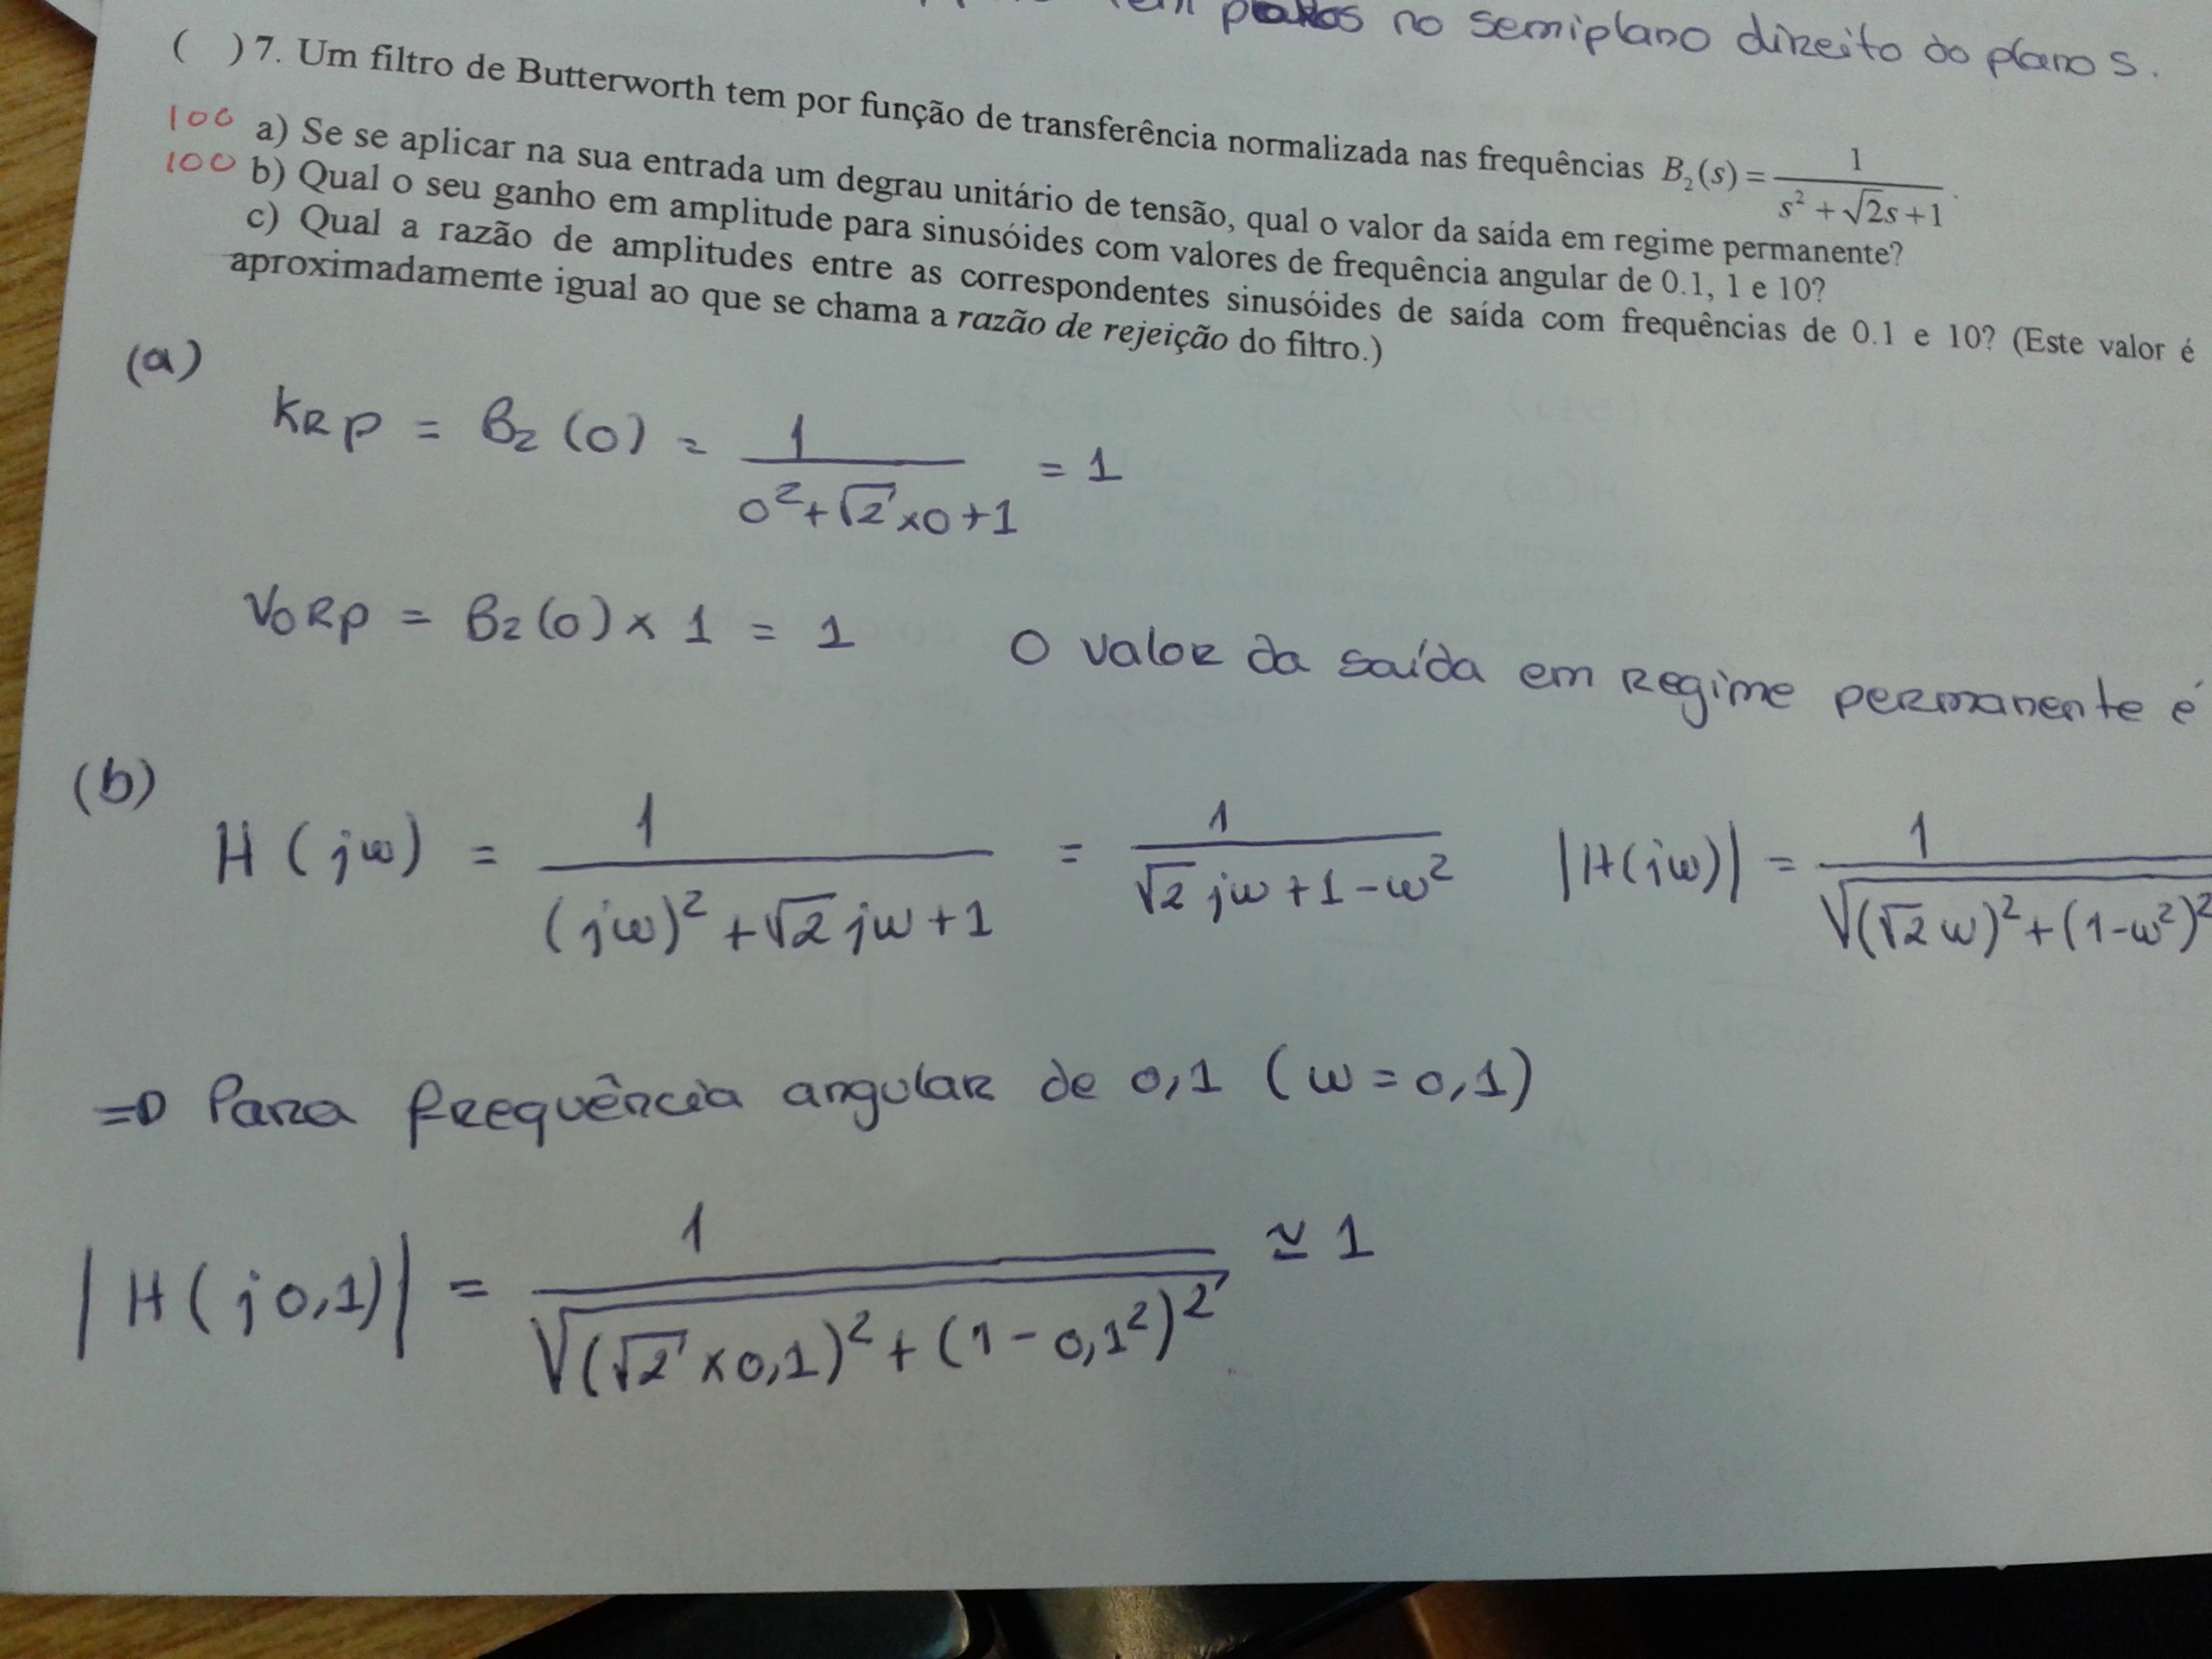 no semiplano direito do plano s.
( ) 7. Um filtro de Butterworth tem por função de transferência normalizada nas frequências B₂(s) = 1 / (s² + √2s + 1).
100 a) Se se aplicar na sua entrada um degrau unitário de tensão, qual o valor da saída em regime permanente?
100 b) Qual o seu ganho em amplitude para sinusóides com valores de frequência angular de 0.1, 1 e 10?
c) Qual a razão de amplitudes entre as correspondentes sinusóides de saída com frequências de 0.1 e 10? (Este valor é
aproximadamente igual ao que se chama a razão de rejeição do filtro.)
(a)
KRP = B₂(0) = 1 / (0² + √2 × 0 + 1) = 1
VORP = B₂(0) × 1 = 1 O valor da saída em regime permanente é
(b)
H(jω) = 1 / ((jω)² + √2 jω + 1) = 1 / (√2 jω + 1 - ω²) |H(jω)| = 1 / √((√2 ω)² + (1-ω²)²
⇒ Para frequência angular de 0,1 (ω = 0,1)
|H(j0,1)| = 1 / √((√2 × 0,1)² + (1 - 0,1²)²) ≃ 1